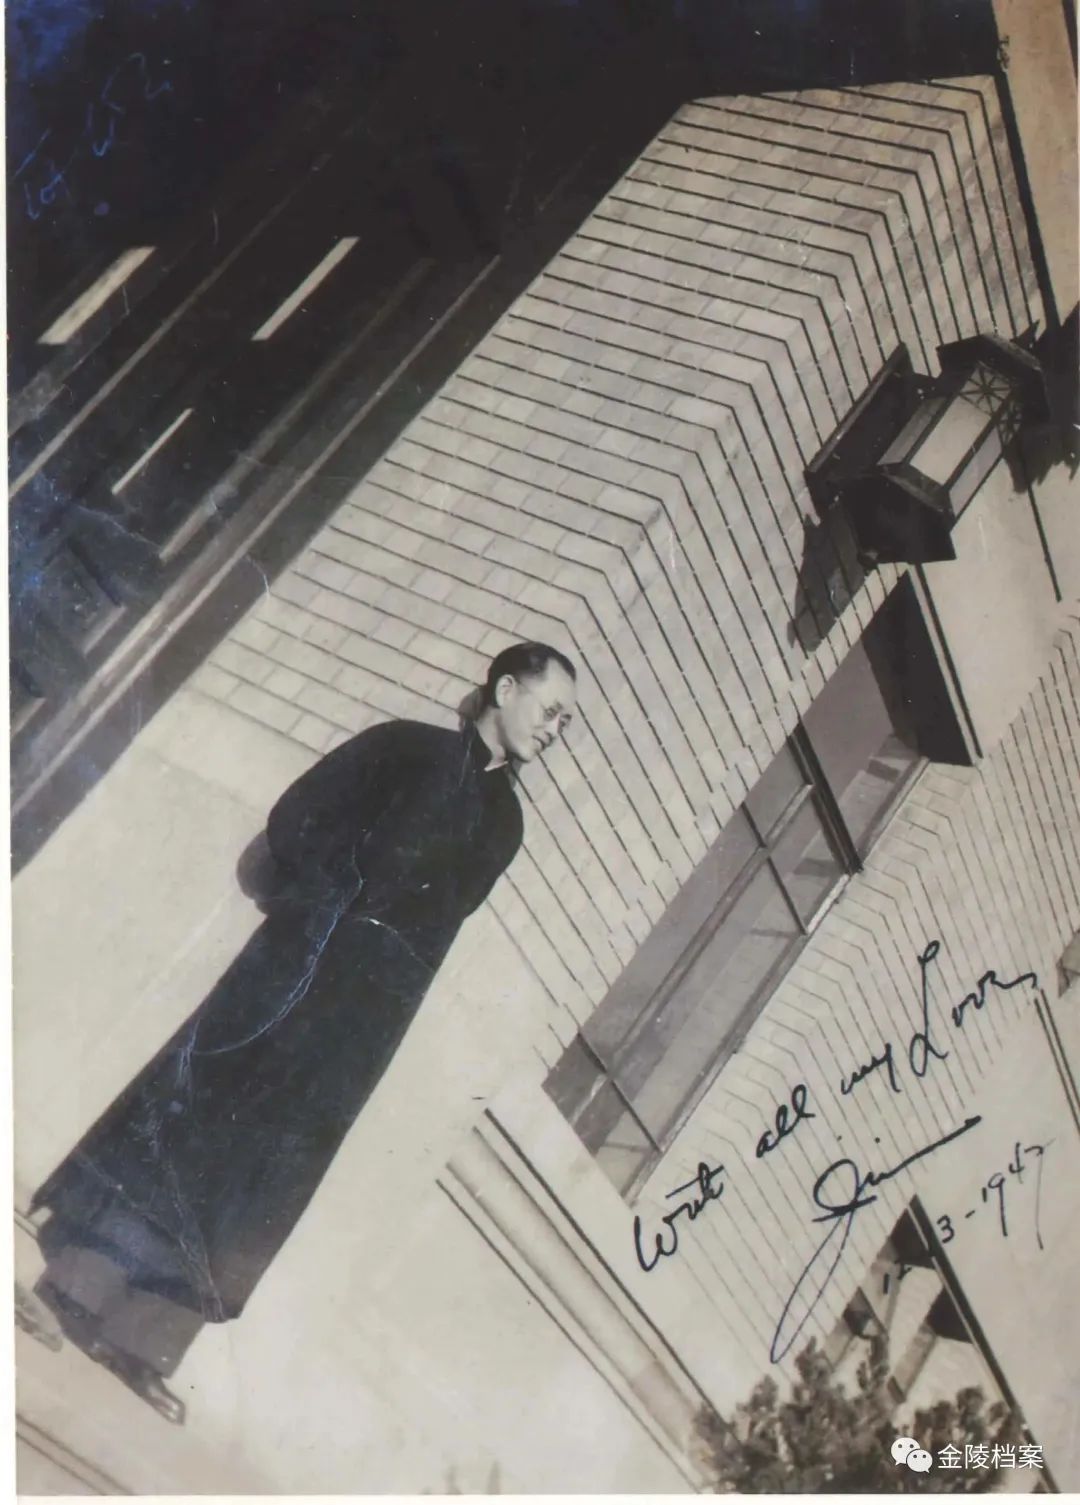 With all my Love,
Jim
12-3-1947
金陵档案